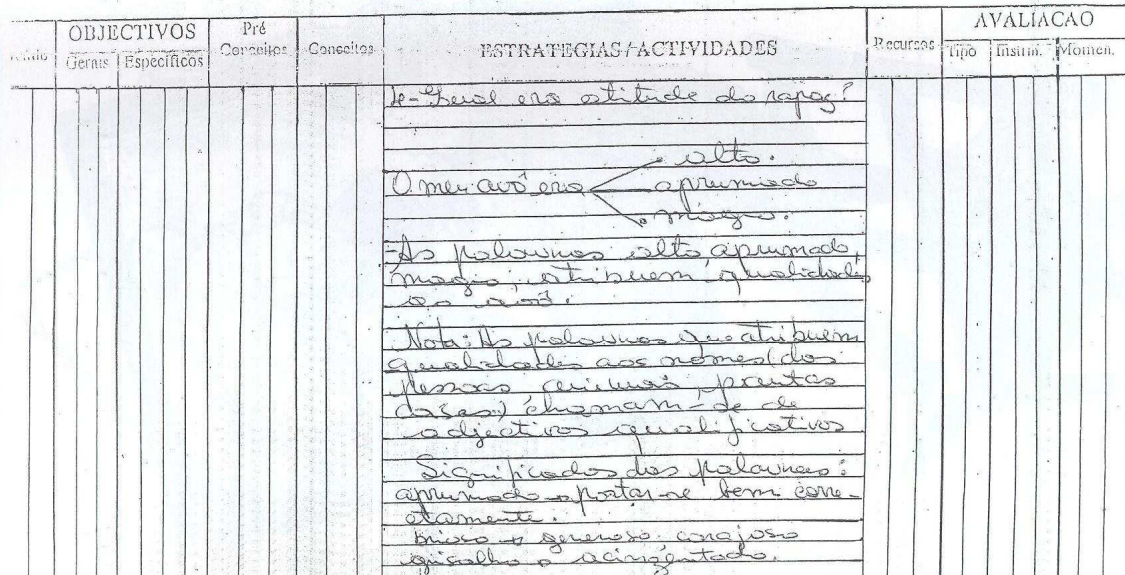 OBJECTIVOS Pré Conceitos Conceitos ESTRATEGIAS/ACTIVIDADES Recursos AVALIACAO
Gerais Específicos Tipo Instrm. Momen.
era atitude do rapaz?
alto.
O meu avô era aprumado
magro.
-As palavras alto, aprumado,
magro, atribuem qualidades
ao avô.
Nota: As palavras que atribuem
qualidades aos nomes (dos
pessoas animais, prantas
cosas) chamam-se de
adjectivos qualificativos
Significados das palavras:
aprumado portar-se bem corre-
tamente.
brioso generoso, corajoso
grisalho acinzentado.